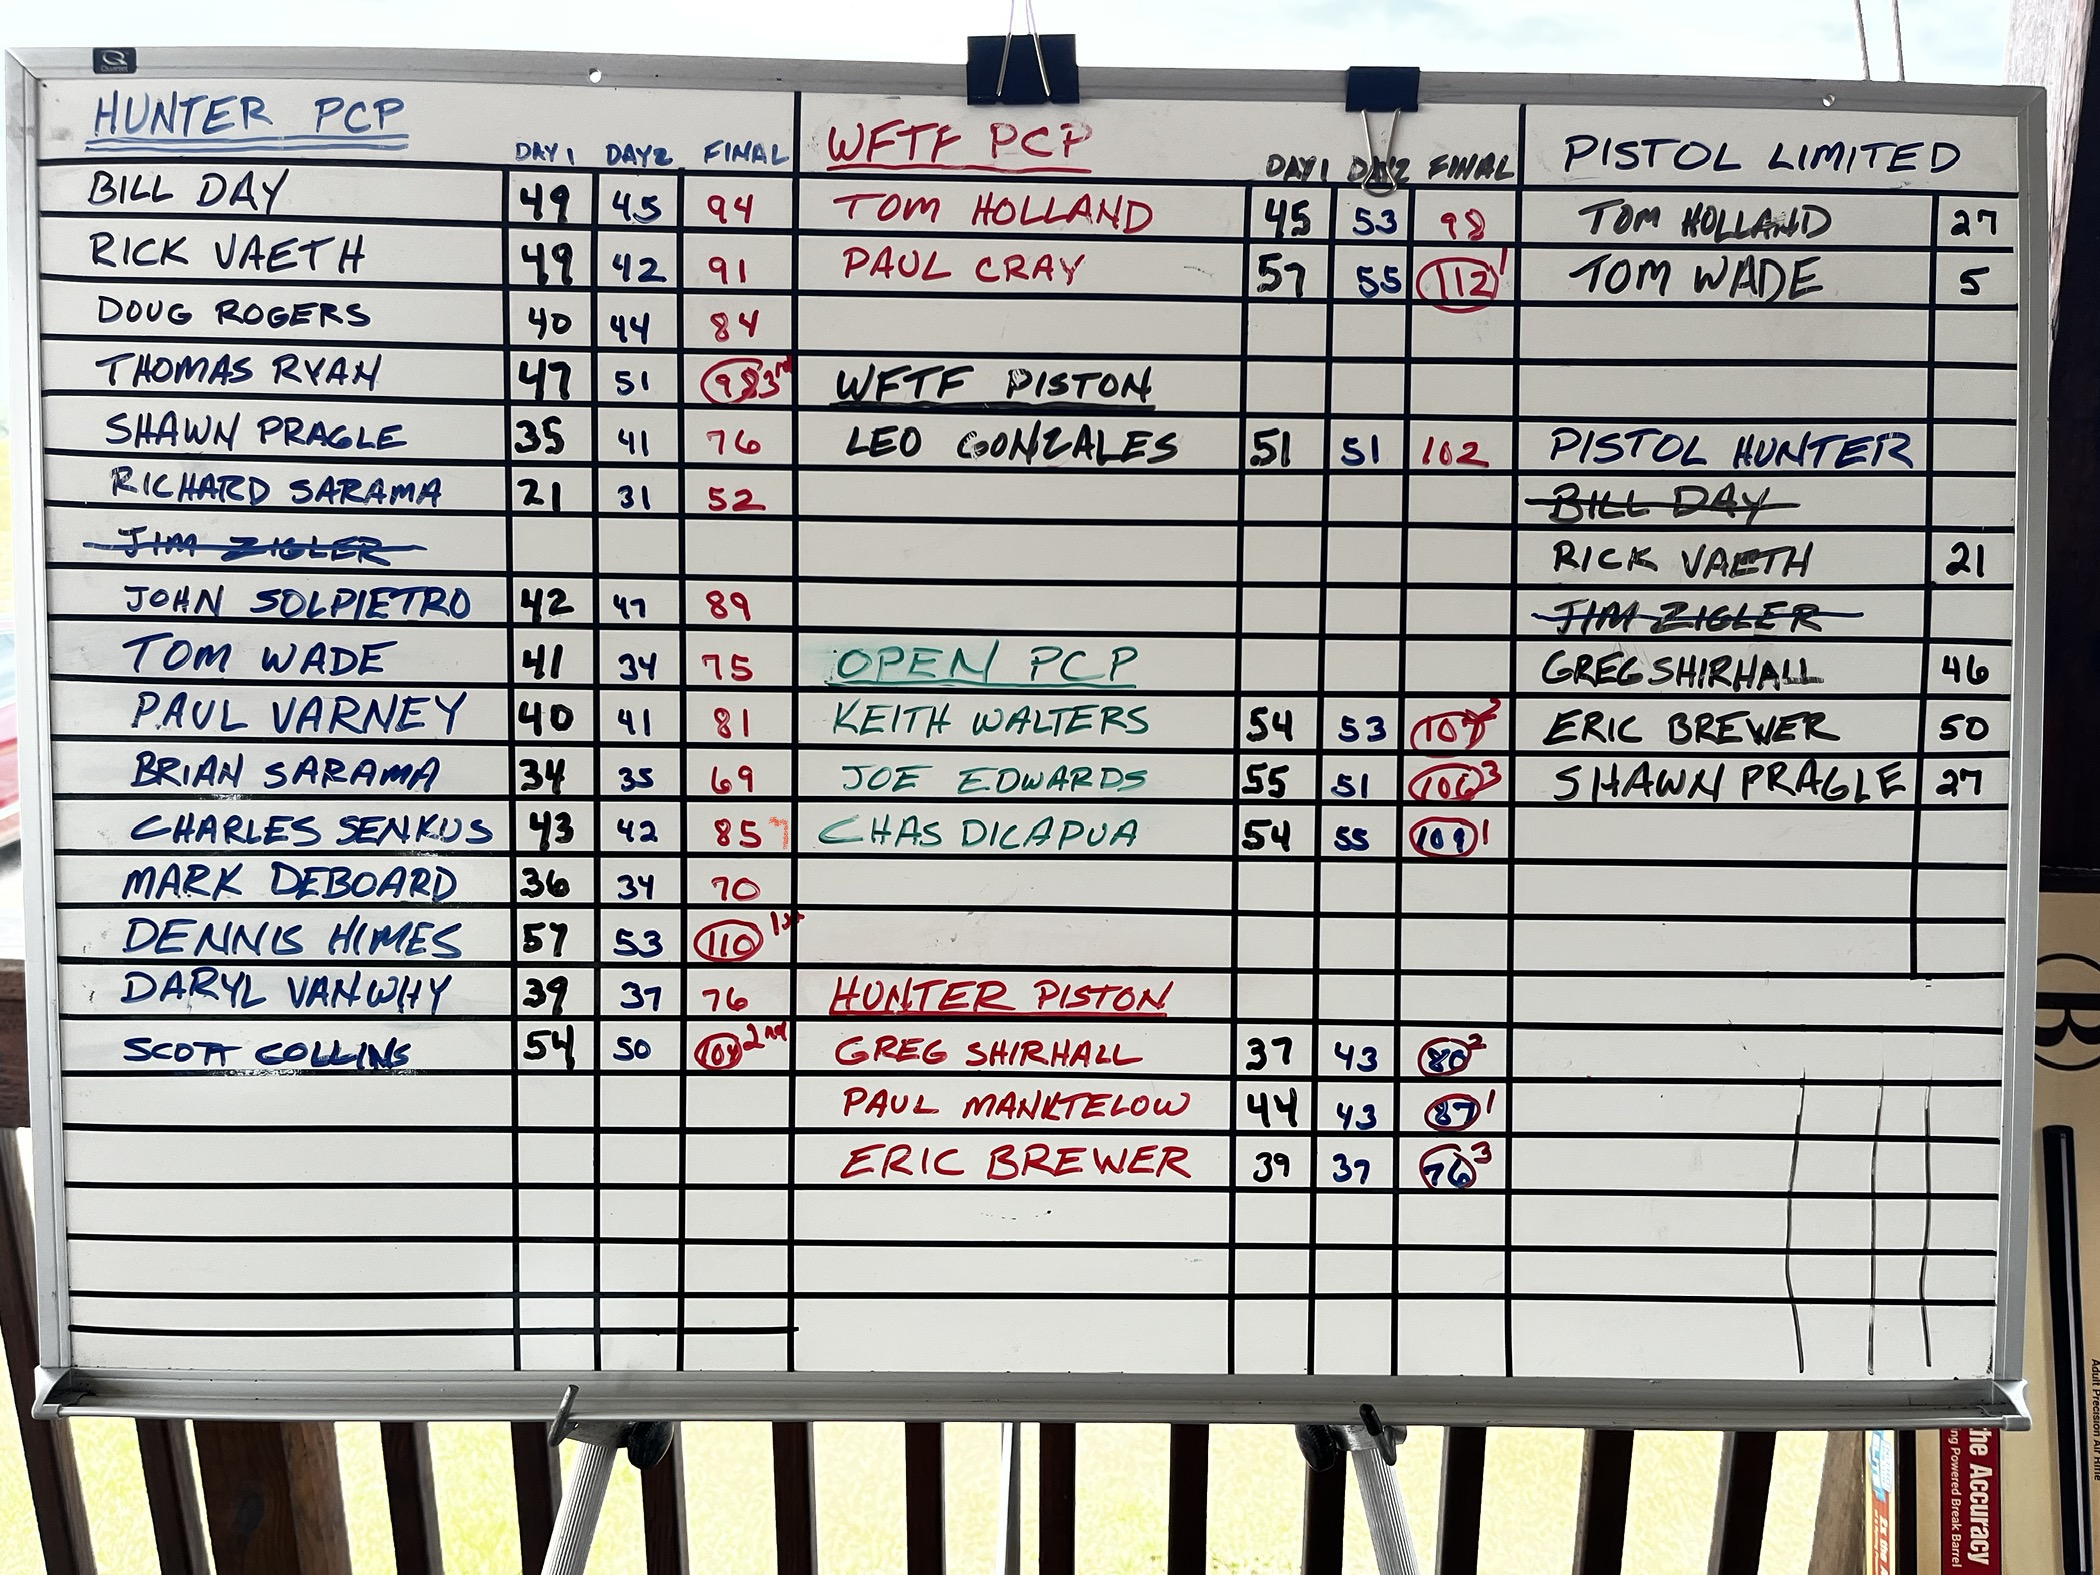 HUNTER PCP DAY 1 DAY 2 FINAL
BILL DAY 49 45 94
RICK VAETH 49 42 91
DOUG ROGERS 40 44 84
THOMAS RYAN 47 51 98 3rd
SHAWN PRAGLE 35 41 76
RICHARD SARAMA 21 31 52
JIM ZIGLER
JOHN SOLPIETRO 42 47 89
TOM WADE 41 34 75
PAUL VARNEY 40 41 81
BRIAN SARAMA 34 35 69
CHARLES SENKUS 43 42 85
MARK DEBOARD 36 34 70
DENNIS HIMES 57 53 110 1st
DARYL VANWHY 39 37 76
SCOTT COLLINS 54 50 104 2nd
WFTF PCP DAY 1 DAY 2 FINAL
TOM HOLLAND 45 53 98
PAUL CRAY 57 55 112 1
WFTF PISTON
LEO GONZALES 51 51 102
OPEN PCP
KEITH WALTERS 54 53 107 2
JOE EDWARDS 55 51 106 3
CHAS DICAPUA 54 55 109 1
HUNTER PISTON
GREG SHIRHALL 37 43 80 2
PAUL MANKTELOW 44 43 87 1
ERIC BREWER 39 37 76 3
PISTOL LIMITED
TOM HOLLAND 27
TOM WADE 5
PISTOL HUNTER
BILL DAY
RICK VAETH 21
JIM ZIGLER
GREG SHIRHALL 46
ERIC BREWER 50
SHAWN PRAGLE 27
Quartet
the Accuracy
Powered Break Barrel
Adult Precision Air Rifle